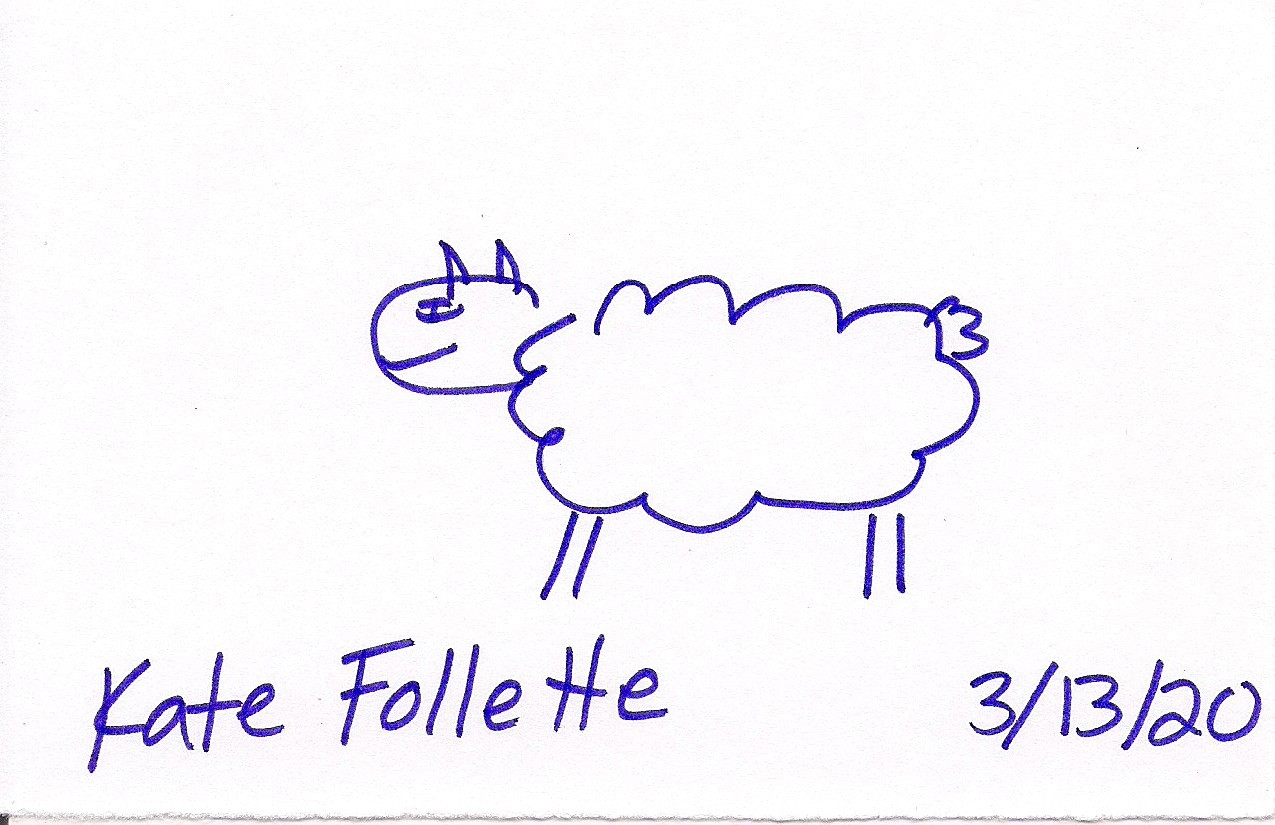 Kate Follette 3/13/20